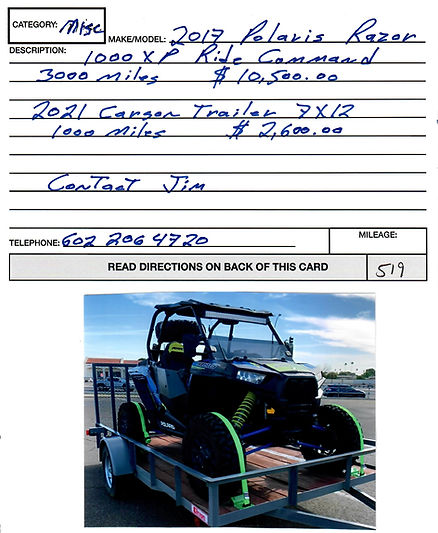 CATEGORY: Misc
MAKE/MODEL: 2017 Polaris Razor
DESCRIPTION: 1000 XP Ride Command
3000 miles $10,500.00
2021 Carson Trailer 7X12
1000 miles $2,600.00
Contact Jim
TELEPHONE: 602 206 4720
MILEAGE:
READ DIRECTIONS ON BACK OF THIS CARD 519
POLARIS